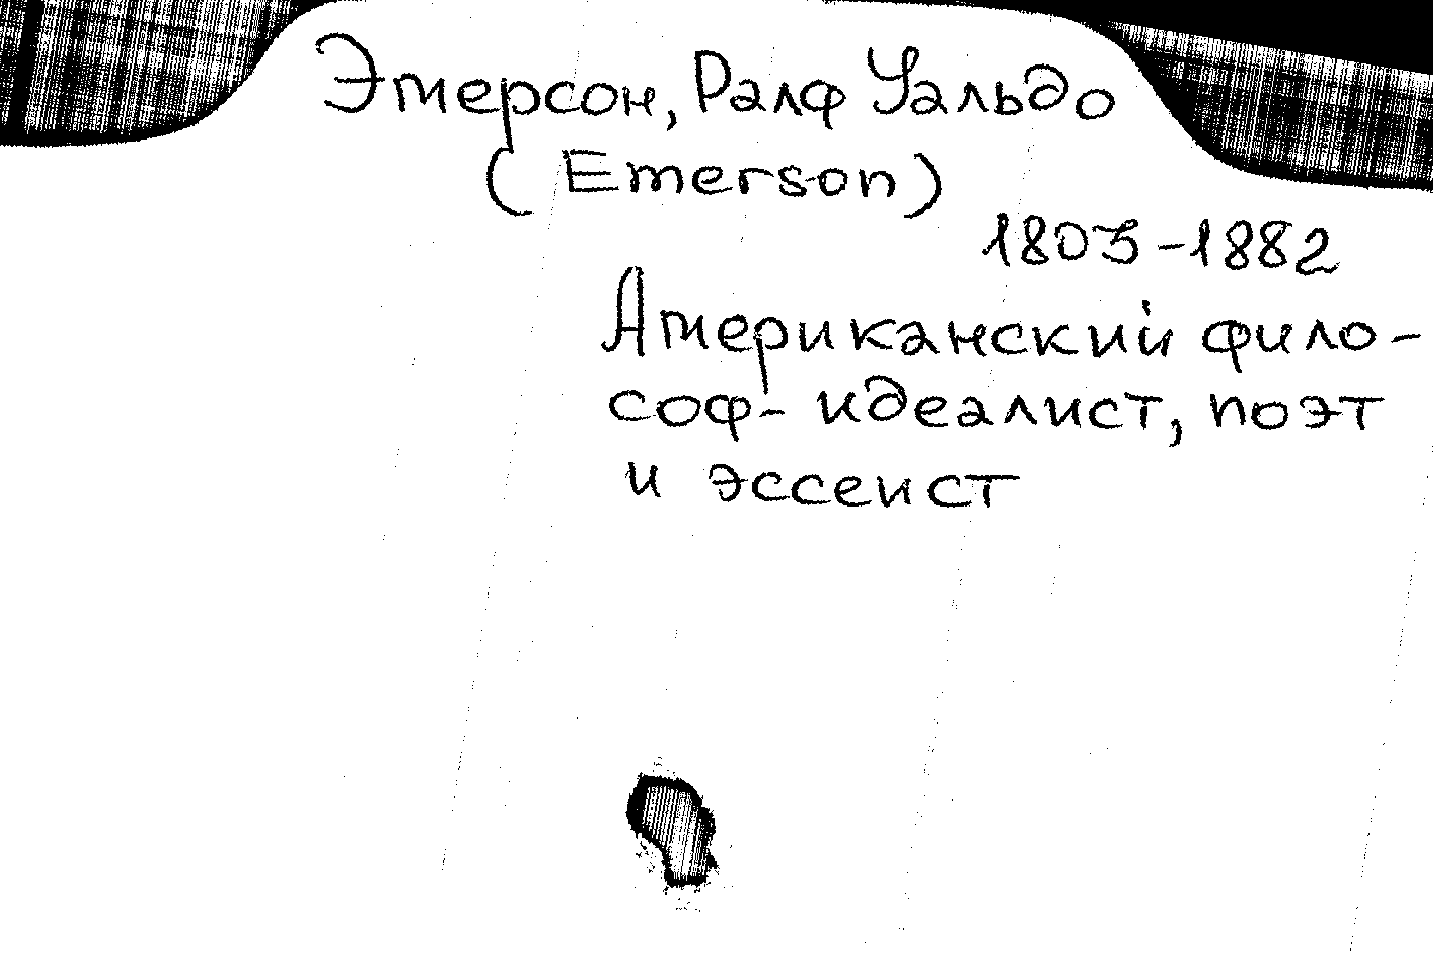 Эмерсон, Ралф Уальдо
(Emerson)
1803-1882
Американский фило-
соф-идеалист, поэт
и эссеист